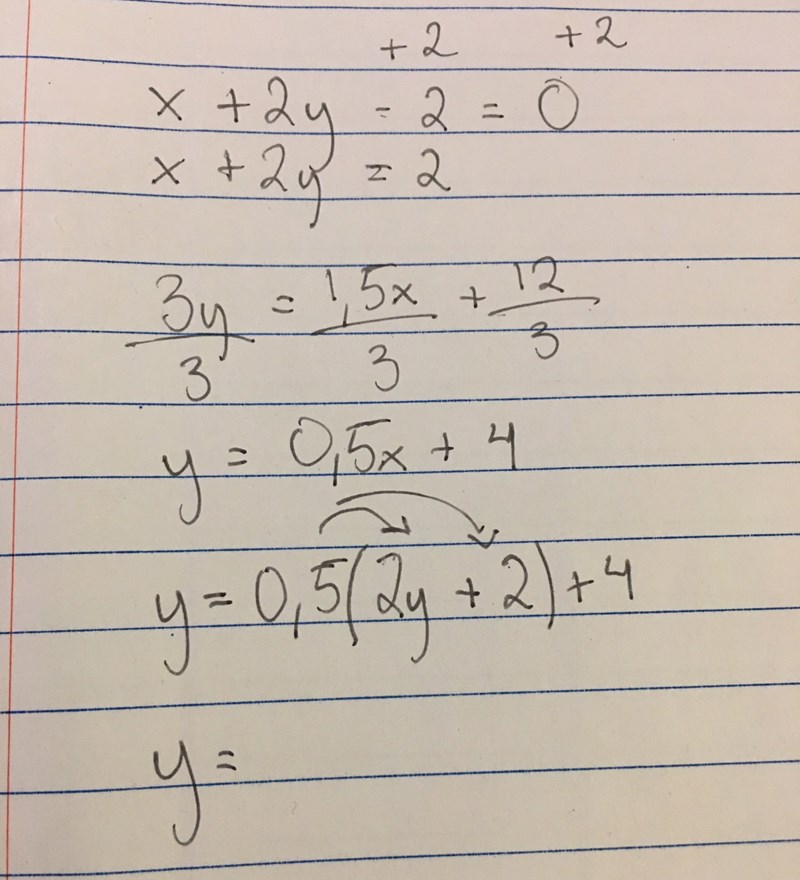 +2 +2
x + 2y - 2 = 0
x + 2y = 2
3y/3 = 1,5x/3 + 12/3
y = 0,5x + 4
y = 0,5(2y + 2) + 4
y =